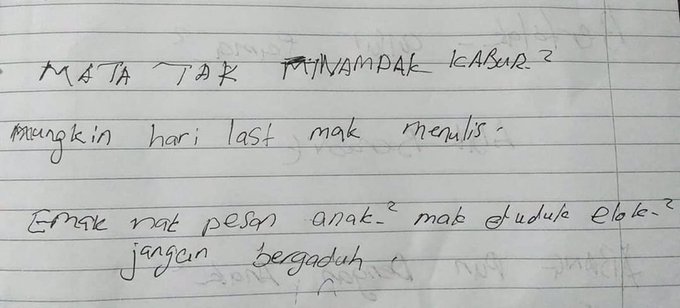 MATA TAK NAMPAK KABUR-2
mungkin hari last mak menulis.
Emak nak pesan anak-2 mak duduk elok-2
jangan bergaduh.